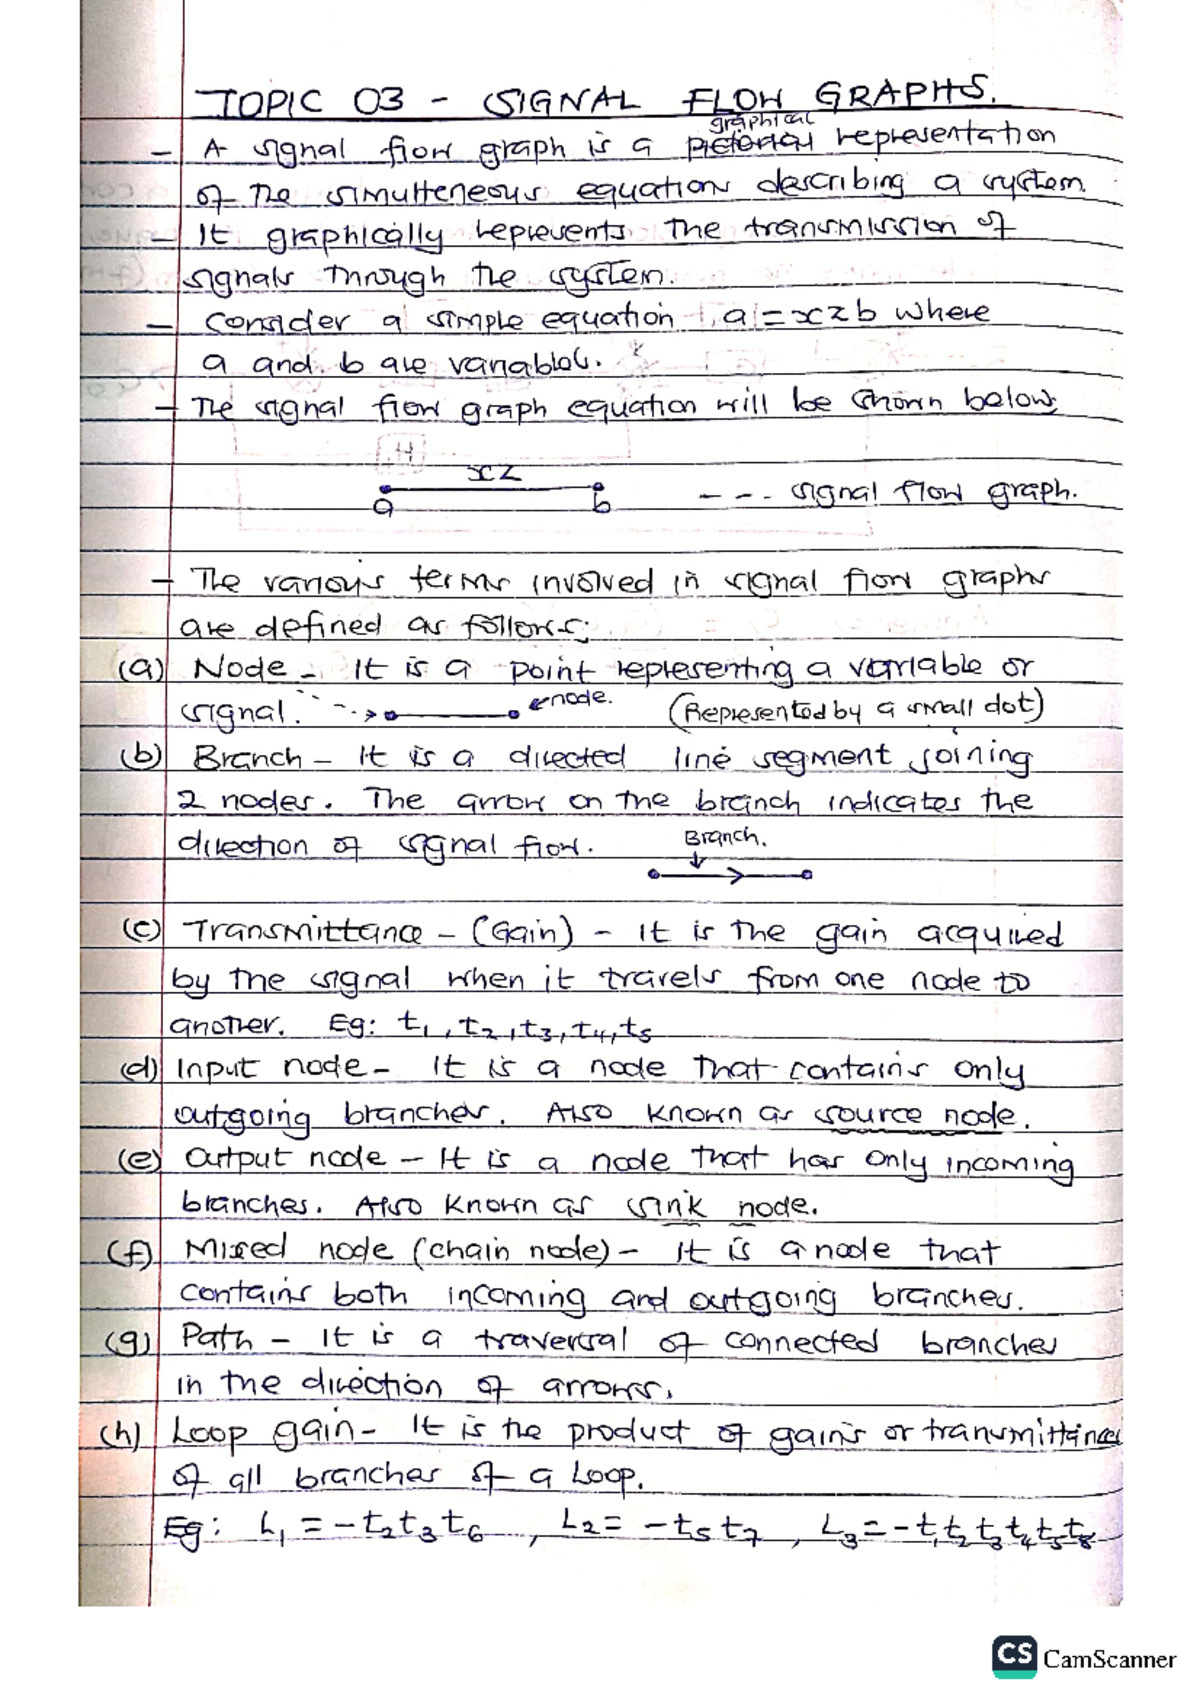 TOPIC 03 - SIGNAL FLOW GRAPHS.
graphical
- A signal flow graph is a pictorial representation
of the simulteneous equations describing a system.
- It graphically represents the transmission of
signals through the system.
- Consider a simple equation, a = xzb where
a and b are variables.
- The signal flow graph equation will be shown below;
xz
a b --- signal flow graph.
- The various terms involved in signal flow graphs
are defined as follows;
(a) Node - It is a point representing a variable or
signal. node. (Represented by a small dot)
(b) Branch - It is a directed line segment joining
2 nodes. The arrow on the branch indicates the
direction of signal flow. Branch.
(c) Transmittance - (Gain) - It is the gain acquired
by the signal when it travels from one node to
another. Eg: t1, t2, t3, t4, t5
(d) Input node - It is a node that contains only
outgoing branches. Also known as source node.
(e) Output node - It is a node that has only incoming
branches. Also known as sink node.
(f) Mixed node (chain node) - It is a node that
contains both incoming and outgoing branches.
(g) Path - It is a traversal of connected branches
in the direction of arrows.
(h) Loop gain - It is the product of gains or transmittances
of all branches of a loop.
Eg: L1 = -t2t3t6 , L2 = -t5t7 , L3 = -t1t2t3t4t5t8
CS CamScanner